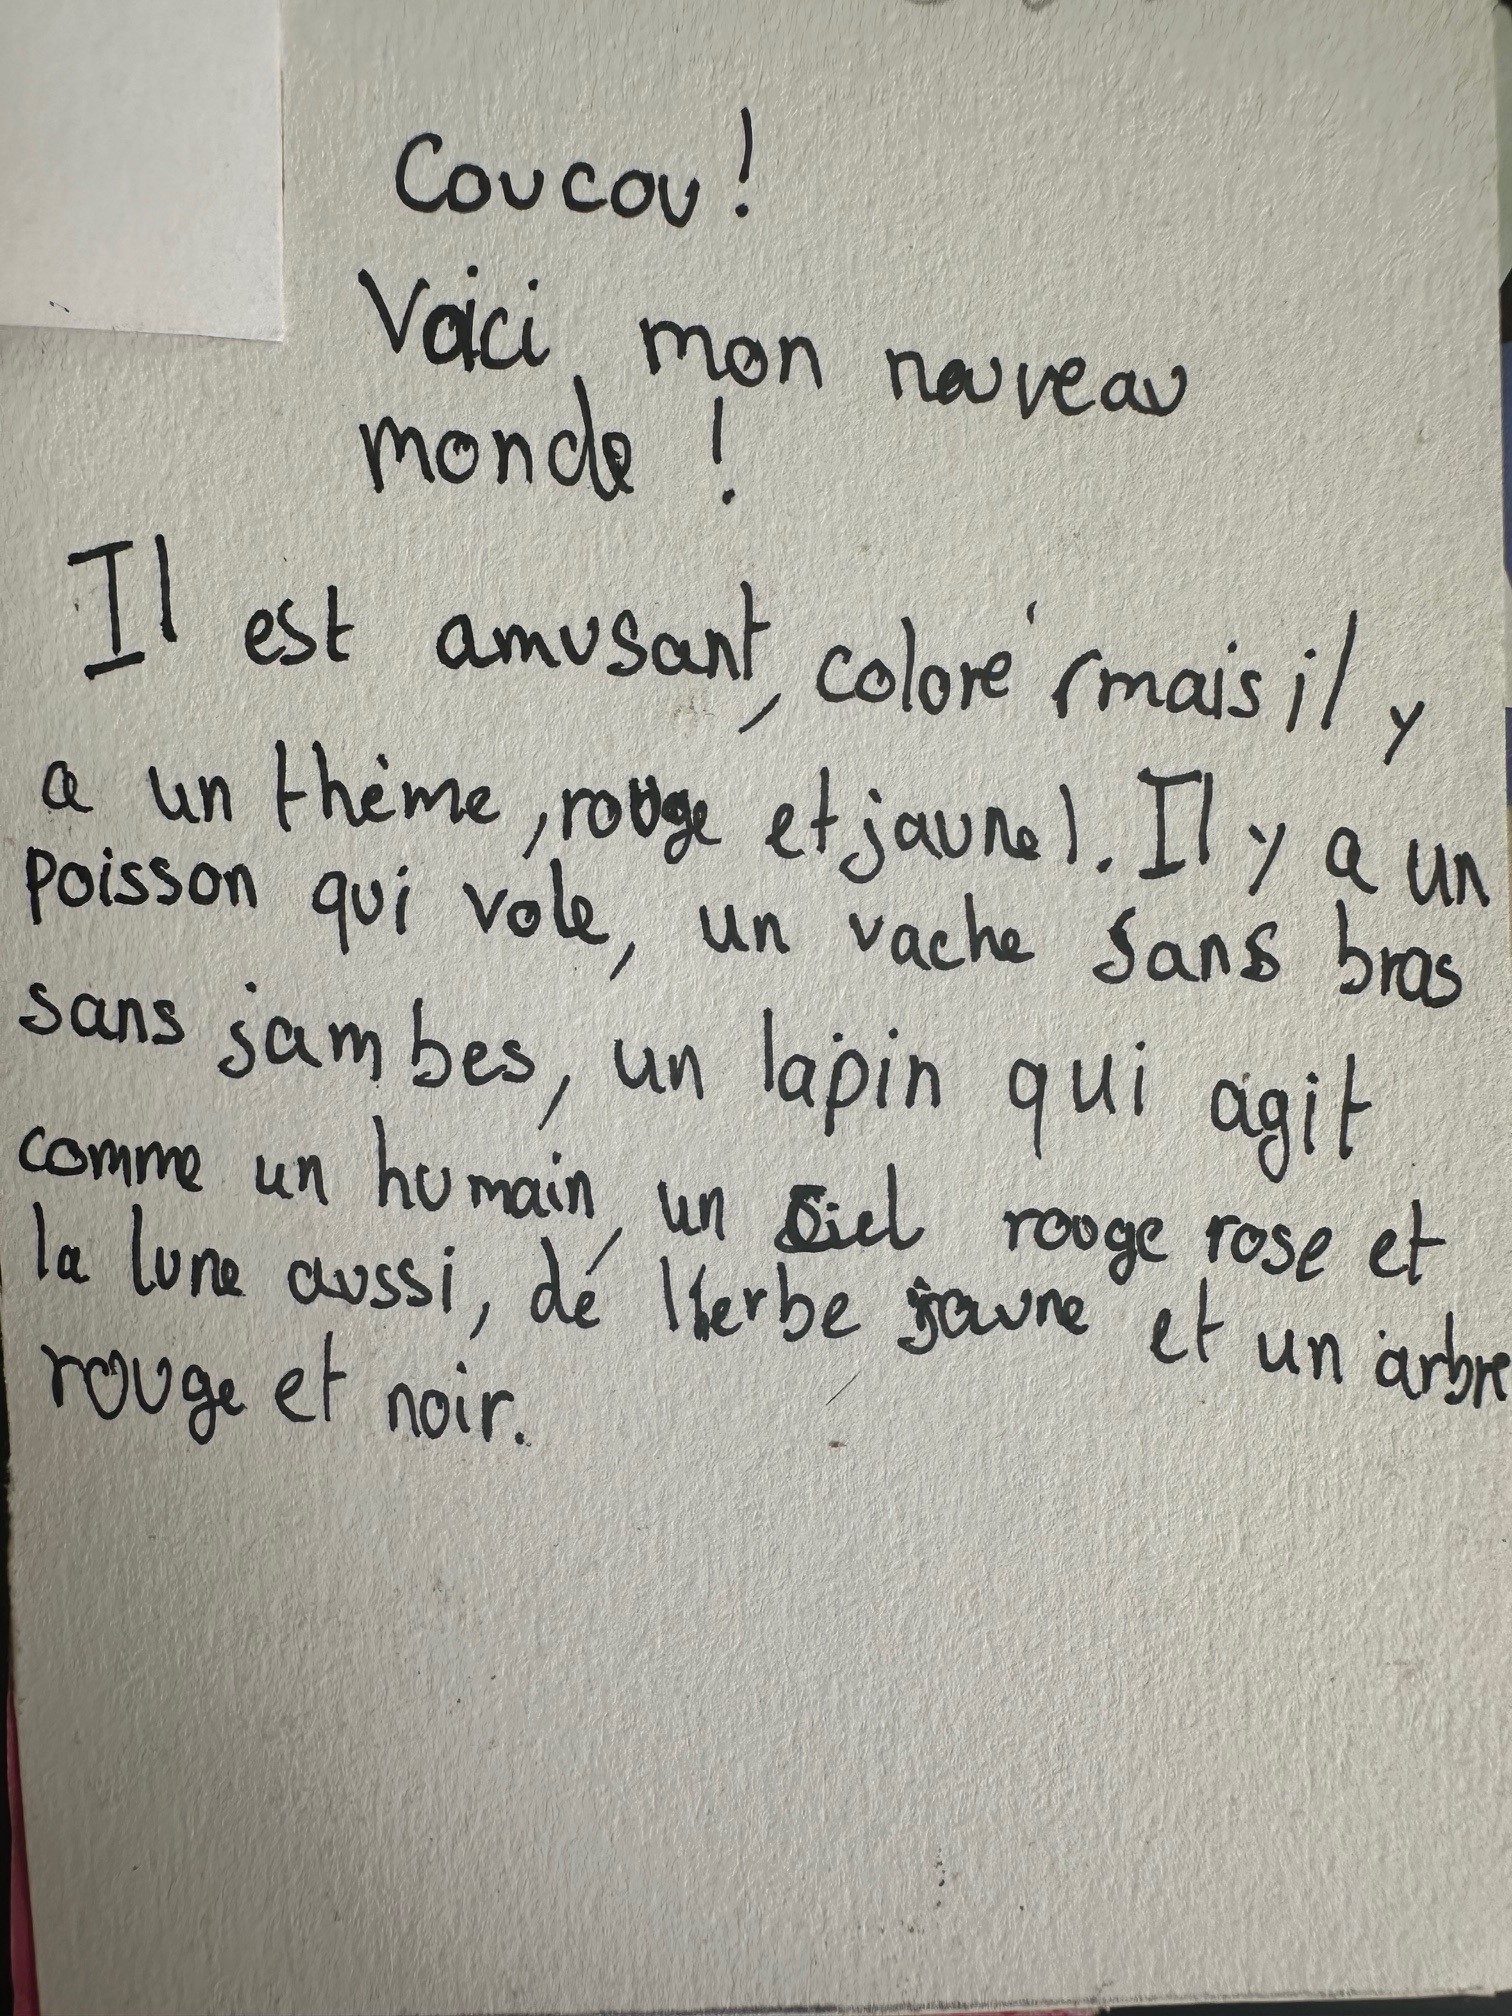 Coucou !
Voici mon nouveau
monde !
Il est amusant, coloré (mais il y
a un thème, rouge et jaune). Il y a un
poisson qui vole, un vache sans bras
sans jambes, un lapin qui agit
comme un humain, un ciel rouge rose et
la lune aussi, dé l'herbe jaune et un arbre
rouge et noir.